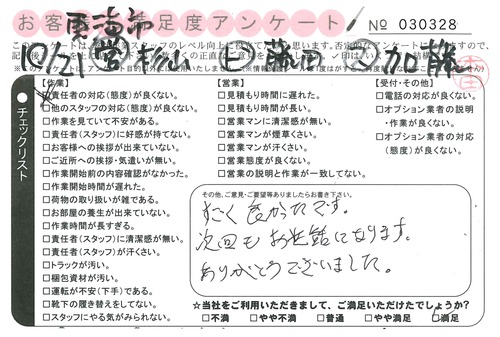 お客様満足度アンケート
№ 030328
西濃市
10/21 営 杉山 D 藤田 S 加藤
チェックリスト
【作業】
責任者の対応(態度)が良くない。
□他のスタッフの対応(態度)が良くない。
□作業を見ていて不安がある。
□責任者(スタッフ)に好感が持てない。
□お客様への挨拶が出来ていない。
□ご近所への挨拶・気遣いが無い。
□作業開始前の内容確認がなかった。
□作業開始時間が遅れた。
□荷物の取り扱いが雑である。
□お部屋の養生が出来ていない。
□作業時間が長すぎる。
□責任者(スタッフ)に清潔感が無い。
□責任者(スタッフ)が汗くさい。
□トラックが汚い。
□梱包資材が汚い。
□運転が不安(下手)である。
□靴下の履き替えをしてない。
□スタッフにやる気がみられない。
【営業】
□見積もり時間に遅れた。
□見積もり時間が長い。
□営業マンに清潔感が無い。
□営業マンが煙草くさい。
□営業マンが汗くさい。
□営業態度が良くない。
□営業の説明と作業が一致してない。
【受付・その他】
□電話の対応が良くない。
□オプション業者の説明
・作業が良くない。
□オプション業者の対応
(態度)が良くない。
その他、ご意見・ご要望等ありましたらお書き下さい。
すごく良かったです。
次回もお世話になります。
ありがとうございました。
☆当社をご利用いただきまして、ご満足いただけたでしょうか?
□不満 □やや不満 □普通 □やや満足 □満足